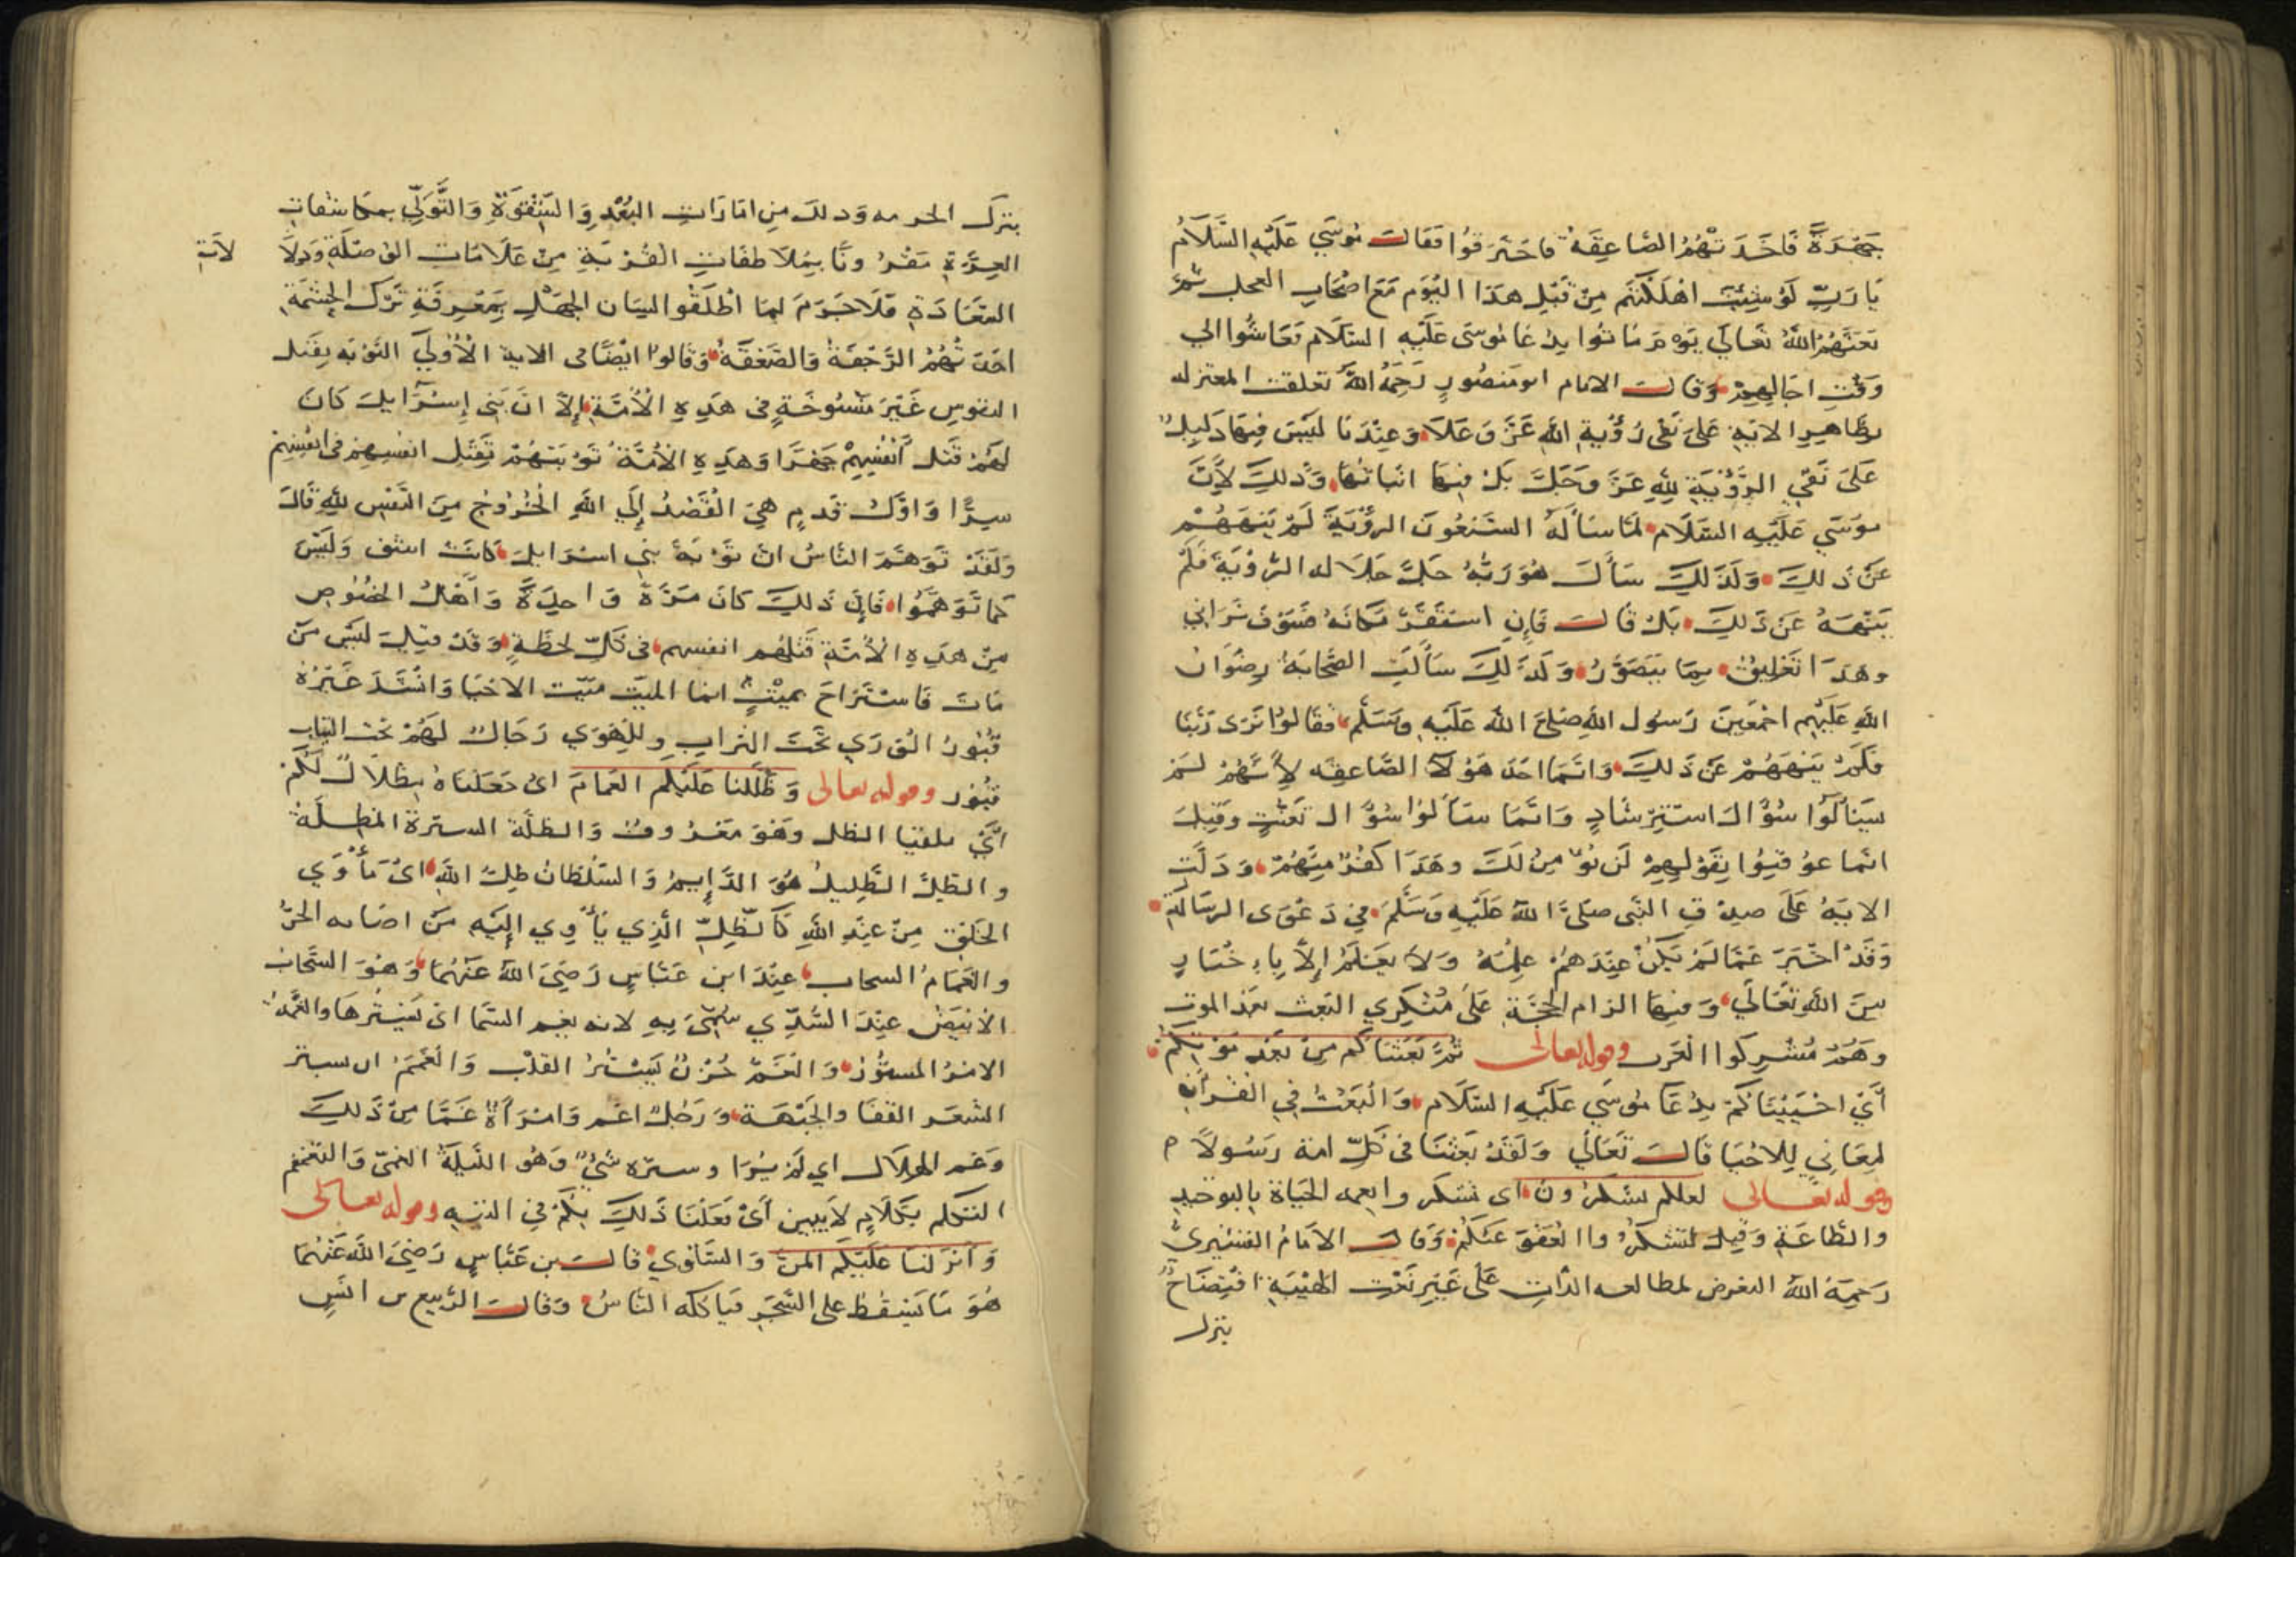 جَهْرَةً فَاَخَذَتْهُمُ الصَّاعِقَةُ فاحْتَرَقُوا فقالَ مُوسَي عَلَيْهِ السَّلَامُ
يَا رَبِّ لَوْ شِئْتَ اهْلَكْتَهُم مِنْ قَبْلِ هذا اليَوم مَعَ اصْحَابِ العجل ثمَّ
بَعَثَهُمُ اللهُ تعَالَي يَوْم مَاتُوا بِدُعَا مُوسَى عَلَيْهِ السَّلَام فعَاشُوا الي
وَقْتِ اجَالِهِمْ وَقَالَ الامام ابو مَنصُورٍ رَحِمَهُ اللهُ تعلقت المعتزله
بظَاهِرِ الايَةِ عَلَى نَفْى رُؤْيةِ اللهِ عَزَّ وَعَلَا وَعِنْدَنا لَيْسَ فِيهَا دَلِيلٌ
عَلَى نَفْيِ الرُّؤْيَةِ لِلَّهِ عَزَّ وَجَلَّ بَلْ فيهَا اثباتُهَا وَذلِكَ لأنَّ
موسَي عَلَيْهِ السَّلَام لَمَّا سَألَهُ السَّبْعُونَ الرؤْيَةَ لَمْ يَنْهَهُمْ
عَنْ ذلِكَ وَلَذَلِكَ سَأَلَ هُوَ رَبَّهُ جَلَّ جَلَاله الرُّؤيَةَ فَلَمْ
يَنْهَهُ عَنْ ذَلِكَ بَلْ قَالَ فَإِنِ اسْتَقَرَّ مَكَانَهُ فَسَوْفَ تَرَانِي
وهَذَا تَعْلِيقٌ بِمَا يَتَصَوَّرُ وَلَذَلِكَ سَأَلَتِ الصَّحَابَةُ رِضْوَانُ
اللهِ عَلَيْهِم اجْمَعِينَ رَسُول اللهِ صَلى اللهُ عَلَيْهِ وَسَلَّم فقالوُا نَرَى رَبَّنا
فَلَمْ يَنْهَهُمْ عَنْ ذَلِكَ وَانَّمَا اخَذَ هَؤلَا الصَّاعِقَه لأنَّهُمْ لَم
يَسْألُوا سُؤَالَ اسْتِرْشَادٍ وَانَّمَا سَألُوا سُؤالَ تعَنُّتٍ وقِيلَ
انّما عُوقِبُوا بِقَوْلِهِمْ لَن نُؤمِنَ لَكَ وهَذَا كفْرٌ مِنْهُمْ وَدَلَّتِ
الايَةُ عَلَى صِدْقِ النَّبى صَلَّى اللهُ عَلَيْهِ وَسَلَّمَ فِي دَعْوَى الرِسَالَةِ
وَقَدْ اخْبَرَ عَمَّا لَمْ يَكُنْ عِنْدَهُمْ عِلْمُهُ وَلَا يعْلَمُ إِلَّا بِاِخْبَارٍ
مِنَ اللهِ تَعَالَي وَفيهَا الزام الحجَّةِ عَلَى مُنْكِرِي البَعث بَعْدَ الموت
وهُمْ مُشرِكوا العَرَب وقوله تعالى ثُمَّ بَعَثْنَاكُم مِنْ بَعْدِ مَوْتِكُمْ
أَيْ احْيَيْنَاكُمْ بِدُعَا مُوسَي عَلَيْهِ السَّلَام وَالْبَعْثُ فِي القُرْآنِ
لِمعَانِي لِلاحْيَا قَالَ تَعَالَي وَلَقَدْ بَعَثْنَا في كُلِّ امة رَسُولًا م
وقوله تعالى لعلكم تشكرُونَ اى تشكروا نعمه الحَيَاة بالتوحيدِ
وَالطَّاعَةِ وَقِيلَ لتشكرُوا العَفْوَ عَنْكُمْ وَقَالَ الامَامُ القُشَيْرِيُّ
رَحِمَهُ اللهُ التعرض لمطالعه الذّاتِ عَلَى غَيْرِ نَعْتِ الهَيْبَةِ افْتِضَاحٌ
بترك
بتركِ الحرمه وَذلك مِن امَارَاتِ البُعْدِ وَالشِّقْوَةِ وَالتَّوَلِّي بمكاشفات
العِزَّةِ مَقْرُونًا بِمُلَاطفَاتِ القُرْبَةِ مِنْ عَلَامَاتِ الوُصْلَةِ وَدَلَالَاتِ
السَّعَادَةِ فَلَا جَرَمَ لَمَا اطْلَقُوا لِسَان الجهْلِ بِمَعْرِفَةِ تَرْك الحِشْمَةِ
اخذتْهُمُ الرَّجْفَةُ وَالصَّعْقَةُ وَقَالوا ايْضًا في الاية الْأُوْلَي التَّوْبَه بِقَتل
النفوسِ غَيْرَ مَنْسُوخَةٍ في هَذِهِ الْأُمَّةِ إِلّا انَ بَنِى إِسْرَآيلَ كَانَ
لَهُمْ قَتل أنْفُسِهِمْ جَهْرًا وَهَذِهِ الأمَّةُ تَوْبَتُهُمْ بِقَتْل انفسِهِمْ في انفُسِهِمْ
سِرًّا وَاوَّلُ قَدمٍ هِيَ الْقَصْدُ إِلَي اللهِ الْخُرُوجُ مِنَ النَّفْسِ لِلَّهِ قَالَ
وَلَقَدْ تَوَهَّمَ النَّاسُ انّ تَوْبَةَ بني اسْرَايلَ كَانَتْ اشق وَلَيْسَ
كما تَوَهَّمُوا فَاِنَّ ذَلِكَ كَانَ مَرَّةً وَاحِدَةً وَأَهْلُ الخُصُوصِ
مِنْ هَذِهِ الأُمَّةِ قَتْلُهُم انفسهم في كلِّ لحظَةٍ وَقَدْ قِيلَ لَيْسَ مَنْ
مَاتَ فَاسْتَرَاحَ بميْتٍ انما الميت ميّت الاحْيَا وَانْشَدَ غَيْرُهُ
قُبُورُ الوَرَي تَحْتَ التراب وللِهَوَي رَجَالٌ لَهُمْ تحت الثياب
قبُور وقوله تعالى وَظَلَّلنا عَلَيْكُم الغَمَامَ اىْ جَعَلْنَاهُ ظِلَالًا لَكُمْ
والظِلُّ الظَّلِيلُ هُوَ الدَّايِمُ وَالسُّلْطَانُ ظِلُّ اللهِ اىْ مَأْوَي
الخَلْقِ مِنْ عِنْدِ اللهِ كَالظِّلِّ الَّذِي يَأْوِي اِلَيْهِ مَنْ اصَابه الحَرُّ
والغَمَامُ السحاب عِنْدَ ابن عَبَّاسٍ رَضِيَ اللهُ عَنْهُمَا وَهُوَ السَّحَابُ
الأبْيَضُ عِنْدَ السُّدِّي سُمِّىَ بِهِ لانه يغم السَّمَا اىْ يَسْتُرهَا والغُمَّةُ
الامْرُ المسْتُورُ وَالْغَمُّ حُزْنٌ يَسْتُرُ القَلْب وَالْغَمَمُ ان يستر
الشعَر القفَا والجَبْهَةَ وَرَجُلٌ اغم وَامْرَأةٌ غَمَّا مِنْ ذَلِكَ
وغم الهلال اي لم يُرَا وستره شيْءٌ وَهُو اللَّيلةُ الغمَّى وَالتغمغم
التكلم بِكَلَامٍ لَا يبين أَىْ فعَلْنَا ذَلِكَ بِكُمْ فِي التيهِ وقوله تعالى
وَأَنزلنا عَلَيْكُم المنَّ وَالسَّلْوَي قَالَ بن عَبَّاسٍ رَضِيَ اللهُ عَنْهُمَا
هُوَ مَا يَسْقُطُ على الشَّجَرِ فيَاكله النَّاسُ وَقَالَ الرَّبيع بن انَسٍ